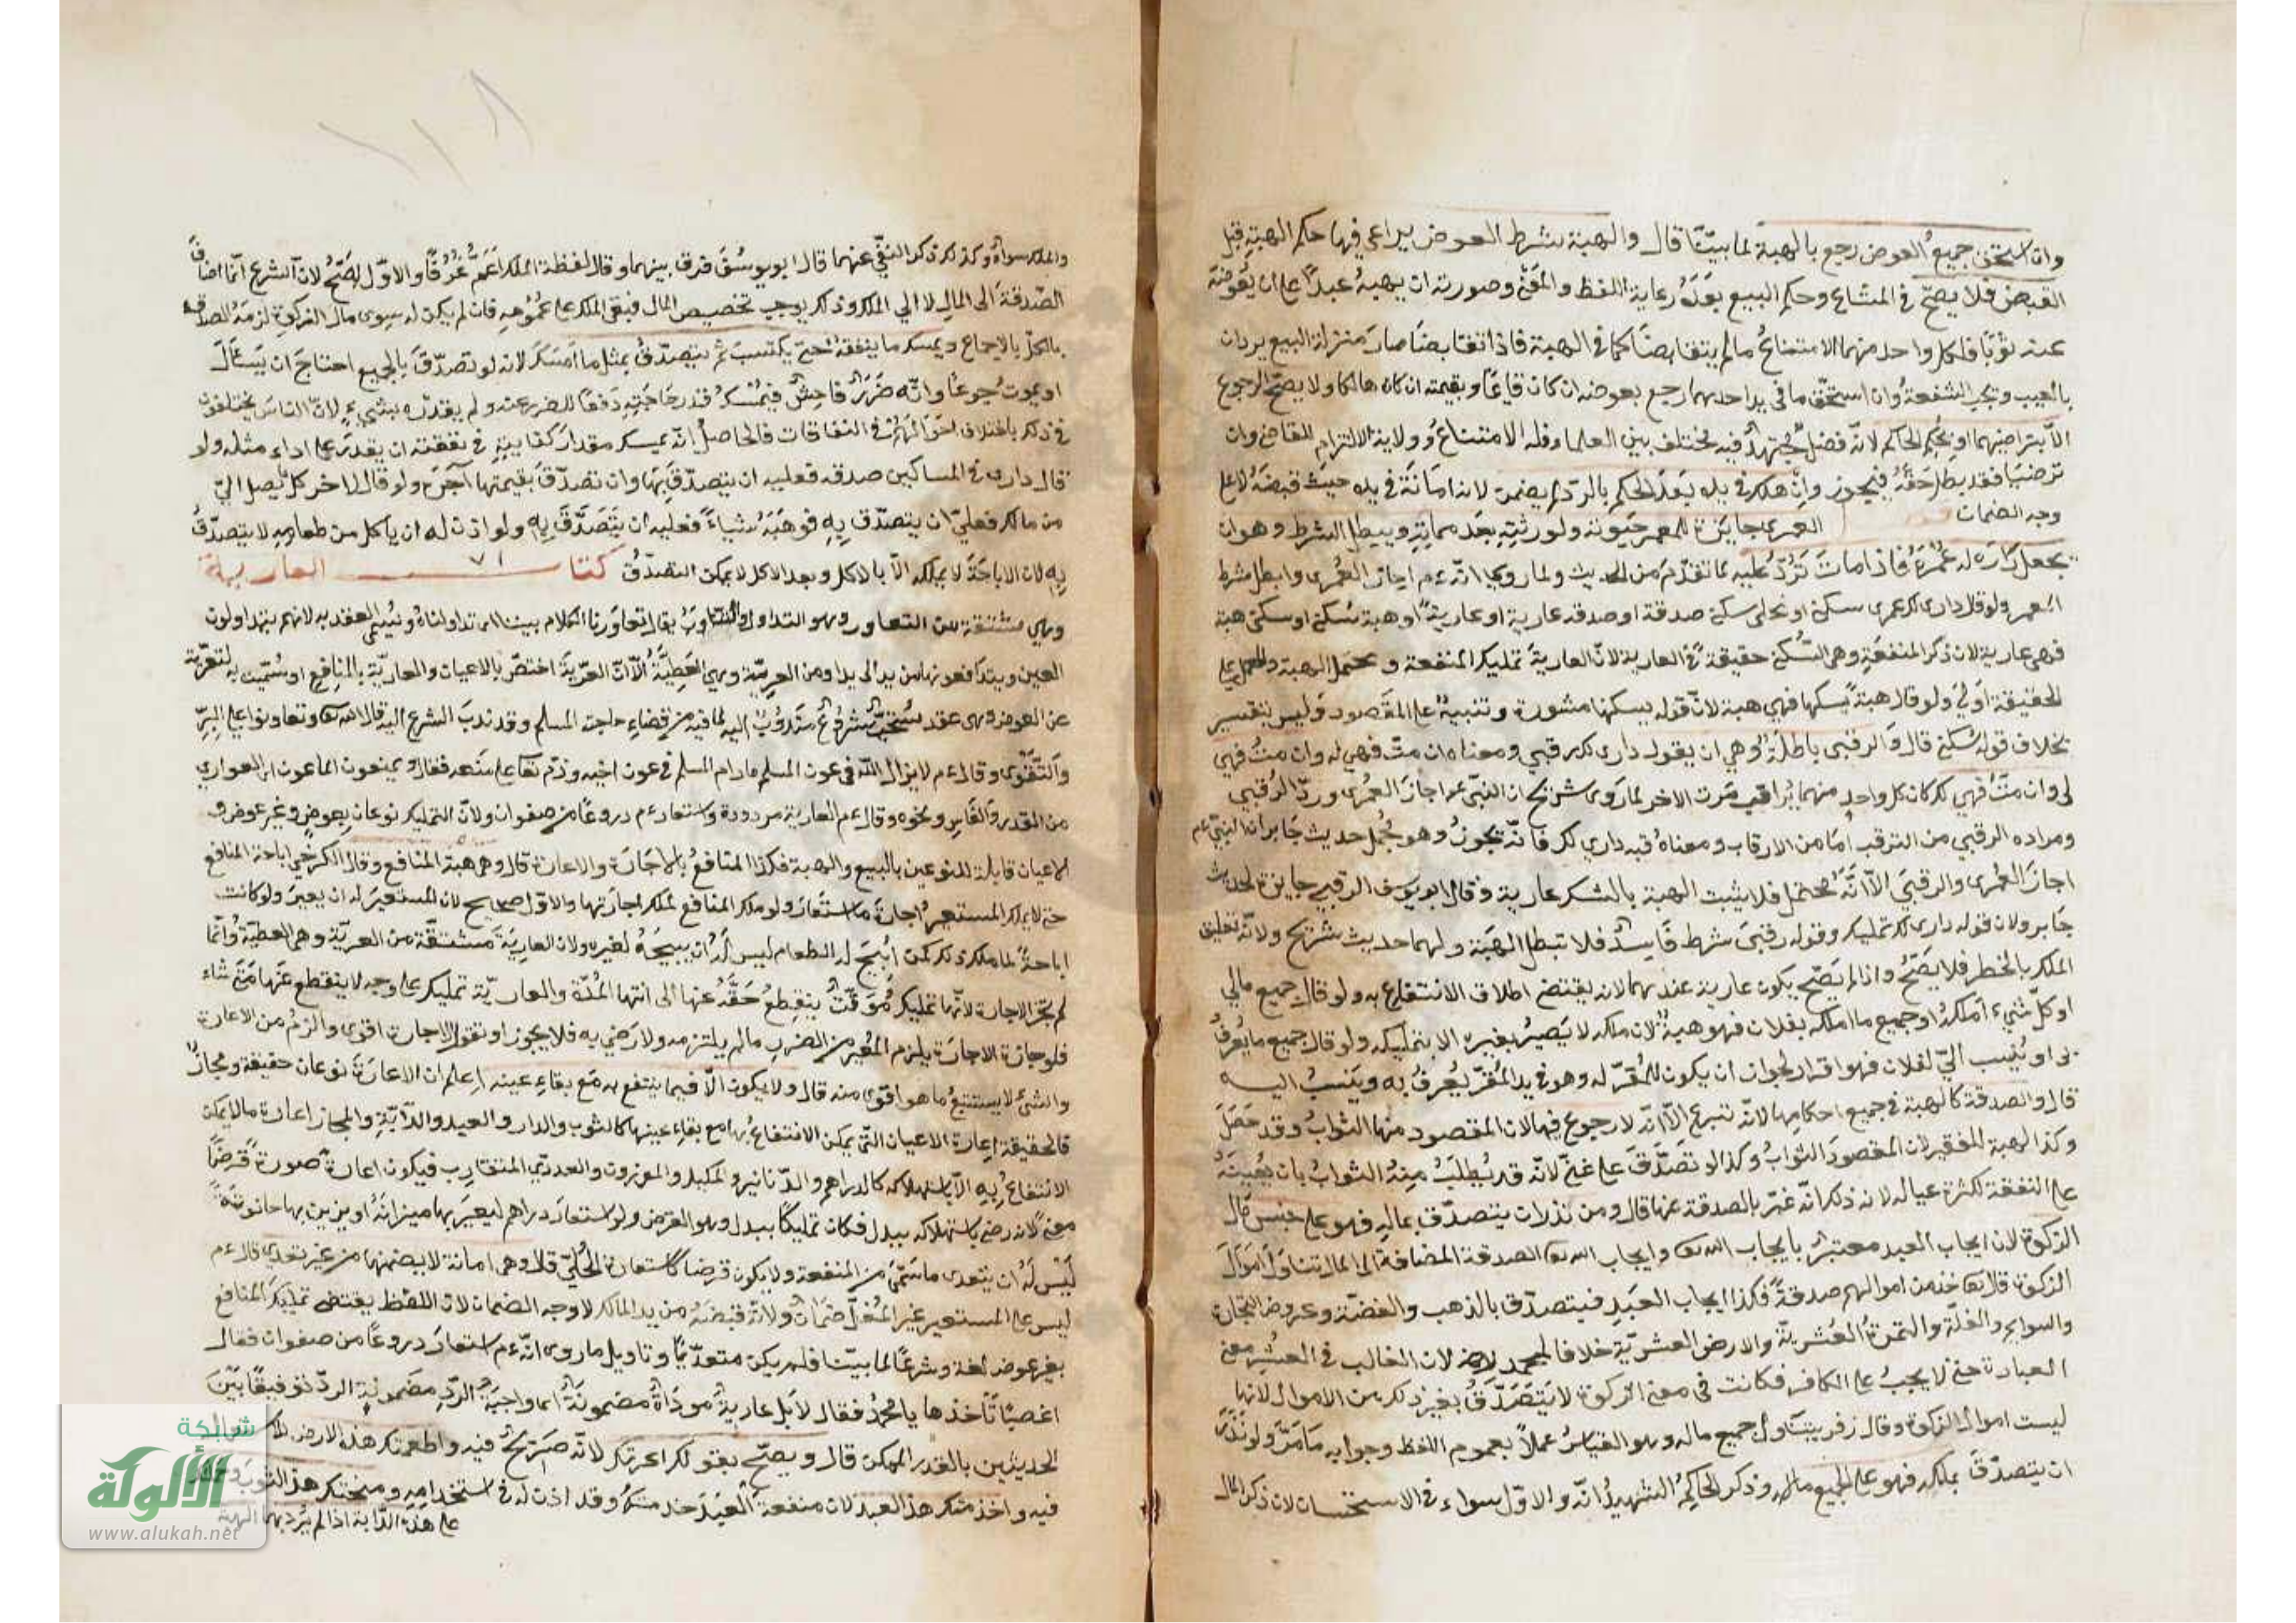 وان استحق جميع العوض رجع بالهبة لما بيّنّا قال والهبة بشرط العوض يراعى فيها حكم الهبة قبل
القبض فلا يصحّ في المشاع وحكم البيع بعدَهُ رعاية اللفظ والمعنى وصورته ان يهبهُ عبدًا على ان يُعَوِّضَهُ
عنه ثوبًا فلكل واحد منهما الامتناعُ مالم يتقابضا كما في الهبة فاذا تقابضا صارَ منزلة البيع يردان
بالعيب وتجب الشفعةُ وان استحّق ما في يد احدهما رجع بعوضه ان كان قايمًا وبقيمته ان كان هالكا ولا يصحّ الرجوع
الاّ بتراضيهما او بحُكم الحاكم لانّه فصلٌ مُجتهدٌ فيه مختلف بين العلما وفله الامتناعُ وولاية الالتزام للقاضي وان
ترضيَا فقد بطل حَقَّهُ فيجوز وانْ هلك في يده بَعدَ الحكم بالردّ لم يضمن لانه امَانَة في يده حيث قبضَهُ لا على
وجه الضمان العمرى جايزة للمعمر حيوته ولورثتِهِ بعدَ مماتِهِ ويبطل الشرط وهو ان
يجعل دارَه له عُمْرَهُ فاذا ماتَ تَرُدُّ عليه لما تقدّمَ من الحديث ولما روى انّه ءم اجاز العُمرى وابطل شرط
المعمر ولو قال دارى لك عمرى سكنى او نحلى سكنى صدقة او صدقه عارية او عاريةً او هبة سُكنى او سكنى هبة
فهى عارية لان ذكر المنفعَةِ وهى السّكنى حقيقةً في العارية لانّ العاريةَ تمليك المنفعة وتحتمل الهبة والحمل على
الحقيقة اَولىَ ولو قال هبةً يسكنها فهى هبة لانّ قوله يسكنها مشورة وتنبيهٌ على المقصود وليس بتفسير
بخلاف قوله سُكنى قال والرقبى باطلةٌ وهي ان يقول دارى لك رقبى ومعناه ان متّ فهى له وان متُّ فهي
لى وان متَّ فهي لك كان كل واحدٍ منهما يُراقب مَوت الاخر لما رَوى شريح ان النبىّ عم اجاز العُمرى وردّ الرُقبى
ومراده الرقبي من الترقب اَمَا من الارقاب ومعناهُ رقبه داري لك فانّه يجوزُ وهو مُحمل حديث جابر ان النبيّ عم
اجازَ العُمرى والرقبىَ الاّ انَّهُ محتمل فلا يثبت الهبة بالشك عارية وقال ابو يوسف الرقبى جايزة لحديث
جَابر ولان قوله دارى لك تمليك وقوله رقبىَ شرط فَاسِدٌ فلا تبطل الهبَة ولهما حديث شُريح ولانّه تعليق
الملك بالخطر فلا يصَحُّ واذا لم يَصّح يكون عارية عندهما لانه يقتضى اطلاق الانتفاع به ولو قال جميع مالي
او كلّ شيء املكهُ او جميع ما املكه لفلان فهو هبةٌ لان ملكه لا يَصيرُ لغيره الا بتمليكه ولو قال جميع ما يُعرَفُ
بى او يُنسب اليّ لفلان فهو اقرار لجواز ان يكون للمُقَرّ له وهو في يد المُقِرّ يُعرفُ به ويَنسبُ اليه
قال والصدقة كالهبة في جميع احكامِها لانّه تبرع الاّ انّه لا رجوع فيها لان المقصود منها الثوابُ وقد حَصَلَ
وكذا الهبة للفقير لان المقصودَ الثوابُ وكذا لو تصَدّقَ على غنيّ لانّه قد يُطلَبُ مِنهُ الثوابُ بان يُعِينَهُ
على النفقة لكثرة عياله لانه ذكر انّه عَبّر بالصدقة عنها قال ومن نذر ان يتصدّق بمالِهِ فهو على جنس مال
الزكوة لان ايجاب العبد معتبرٌ بايجاب الله تعا وايجاب الله تعا الصدقة المضافة الى المال تناوَلَ اَموَالَ
الزكوة قال تعا خذ من اموالهم صدقةً فكذا ايجاب العَبدِ فيتصدّق بالذهب والفضّة وعروض التجارة
والسوايم والغلّة والثمرة العُشريّة والارض العشريّة خلافا لمحمد لان الغالب في العُشرِ معنى
العبادة حتى لا يجبُ على الكافر فكانت في معنى الزكوة لا يتصَدّقُ بغير ذلك من الاموال لانها
ليست اموال الزكوة وقال زفر يتناول جميع ماله وهو القياسُ عملاً بعموم اللفظ وجوابه مَا مَرَّ ولو نذرَ
ان يتصدّقَ بملكه فهو على الجميع وذكر الحاكِمُ الشهيدُ انّه والاوّل سواء في الاستحسان لان ذكر المال
والملك سواءٌ وكذلك ذكر النفي عنهما قال ابو يوسُفَ فرق بينهما وقال لفظة الملك اَعَمُّ عُرْفًا والاوّل اَصَحُّ لانّ الشرع انّما اضافَ
الصّدقةَ الى المالِ لا الي الملك وذلك يوجب تخصيص المال فبقى الملك على عُمُومِهِ فان لم يكن له سِوى مال الزكوة لزمَهُ التصدّق
بالكلّ بالاجماع ويمسك ما ينفقهُ حتى يكتسبَ ثم يتصدّقُ بمثل ما امْسَكَ لانه لو تصدّقَ بالجميع احتاجَ ان يَسْألَ
او يموت جُوعًا وانّه ضَرَرٌ فاحِشٌ فيُمْسكُ قدر حَاجَتِهِ دَفعًا للضرر عنه ولم يقدّره بشيءٍ لانّ الناسَ يختلفون
في ذلك باختلاف احوَالهِمْ في النفاقات فالحاصل انّه يمسك مقدارَ كفايتِهِ في نفقته ان يقدرَ على اداء مثله ولو
قال دارى في المساكين صدقه فعليه ان يتصدّقَ بهَا وان تصَدّقَ بقيمتها اَجزَى ولو قال لاخر كل ما يصل اليّ
من مالك فعليّ ان يتصدّق بِهِ فوهَبَهُ شياءً فعليه ان يتصَدَّقَ بِهِ ولو اذن له ان ياكل من طعامِهِ لا يتصدّقُ
بِهِ لان الاباحَةَ لا يملكه الاّ بالاكل وبعد الاكل لا يمكن التصدّقُ كتاب العارية
وهي مشتقة من التعاور وهو التداول والتناوبُ يقال تعاوَرنا الكلام بيننا اى تداولناهُ ويُسمى العقد به لانهم يتداولون
العين ويتدافعونها من يد الى يد او من العريّة وهي العَطِيَّةُ الاّ انّ العرّيَةَ اختصّ بالاعيان والعاريّة بالمنافع او سُمّيت به لتعرّيه
عن العوض وهى عقد مُسْتحَبٌّ مَشْرُوعٌ مَنْدُوبٌ اليه لما فيه من قضاءِ حاجة المسلم وقد ندبَ الشرع اليه قال الله تعا وتعاونوا على البِرّ
وَالتّقْوى وقال ءم لا يزال الله في عون المسلم مادام المسلم في عون اخيه وذمّ تعا على منعه فقال ويمنعون الماعون اى العوارى
من القدر والفَاسِ ونحوه وقال ءم العارية مردودة واستعار ءم دروعًا من صفوان ولانّ التمليك نوعَانِ بعوضٍ وغير عوض و
الاعيان قابلة للنوعين بالبيع والهبة فكذا المنافعُ بالاجَارة والاعارة قال وهى هبة المنافع وقال الكرخي اباحة المنافع
حتى لا يملك المستعير اجارة ما استعارَ ولو ملك المنافع لملك اجارتها والاوّل صحيح لان للمستعير له ان يعيرَ ولو كانت
اباحةً لما ملك ذلك كمن اُبيَحَ له الطعام ليس لهُ ان يبيحَهُ لغيره ولان العاريَة مشتقّة من العريّة وهى العطيّةُ وانّما
لم تجز الاجارة لانّها تمليك مُوَقّتٌ ينقطِعُ حَقّهُ عنها الى انتها المُدّة والعاريّة تمليك على وجه لا ينقطع عَنها مَتى شاء
فلو جازة الاجارَة يلزم المُعيرَ من الضرر مالم يلتزمه ولا رَضي به فلا يجوز او نقول الاجارة اقوى والزمُ من الاعارة
والشئ لا يستتبعُ ما هو اقوَى منه قال ولا يكون الاّ فيما ينتفع به مَع بقاءِ عينه اعلم ان الاعارَة نوعان حقيقة ومجازٌ
فالحقيقة اِعارة الاعيان التّى يمكن الانتفاعُ بها مع بقاءِ عينها كالثوب والدار والعبد والدآبّةِ والمجاز اعارة مالا يمكن
الانتفاعُ بِهِ الاّ باستهلاكه كالدراهم والدّنانير والمكيل والموزون والعددى المتقارب فيكون اعارة صورةً قَرضًا
معنىً لانه رضى باستهلاكه ببدل فكان تمليكًا ببدل وهو القرض ولو استعارَ دراهم ليعيرَ بها ميزانَهُ او يزين بها حانوتَهُ
لَيْس لهُ ان يتعدى ما سَمّى من المنفعة ولا يكون قرضا كاستعارة الحُلىّ قال وهى امانة لا يضمنها من غير تعدّي قال ءم
ليس على المستعير غير المُغِلّ ضمَانٌ ولانّه قبضَهُ من يد المالك لا وجه الضمان لانّ اللفظ يقتضى تمليك المنافع
بغير عوض لغة وشرعًا لما بيّنا فلم يكن متعدّيًا وتاويل ما روى انّه ءم استعارَ دروعًا من صفوان فقال
اغصبًا تَأخذها يا محمّد فقال لا بَل عاريةً مودّاةٌ مضمونةٌ اى واجبَة الردّ مضمونة الردّ توفيقًا بَيْنَ
الحديثين بالقدر الممكن قال ويصحّ بقولك اعرتك لانّه صَريحٌ فيه واطعمتك هذه الارض
فيه واخذمتك هذا العبد لان منفعة العبدَ خدمتهُ وقد اذن له في استخدامِهِ ومنحتك هذا الثوبَ
على هذه الدّابة اذا لم يرد بها الهبة
شبكة
الألوكة
www.alukah.net